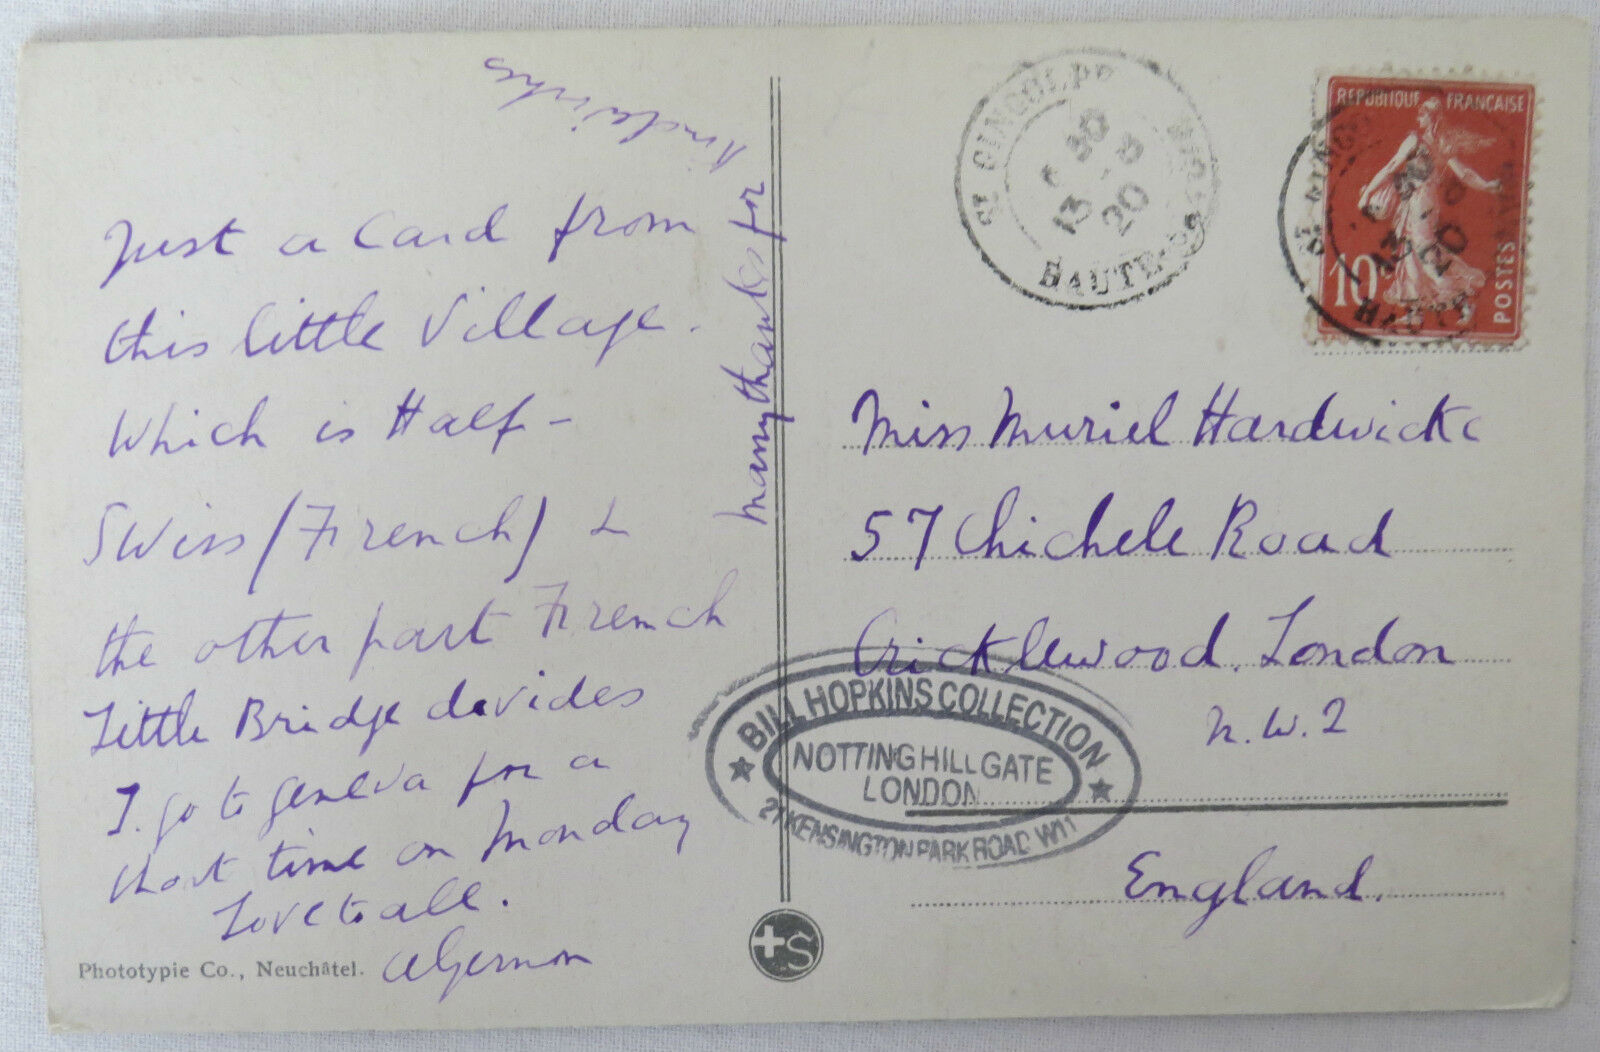 Just a Card from
this little Village.
Which is Half-
Swiss (French) &
the other part French
Little Bridge devides
I. go to geneva for a
short time on Monday
Love to all.
Algernon
many thanks for
Phototypie Co., Neuchâtel.
+S
ST GINGOLPH
13 - 8
20
HAUTE-SAVOIE
REPUBLIQUE FRANÇAISE
10c
POSTES
Miss Muriel Hardwicke
57 Chichele Road
Cricklewood. London
N.W.2
England.
BILL HOPKINS COLLECTION
NOTTING HILL GATE
LONDON
27 KENSINGTON PARK ROAD W11